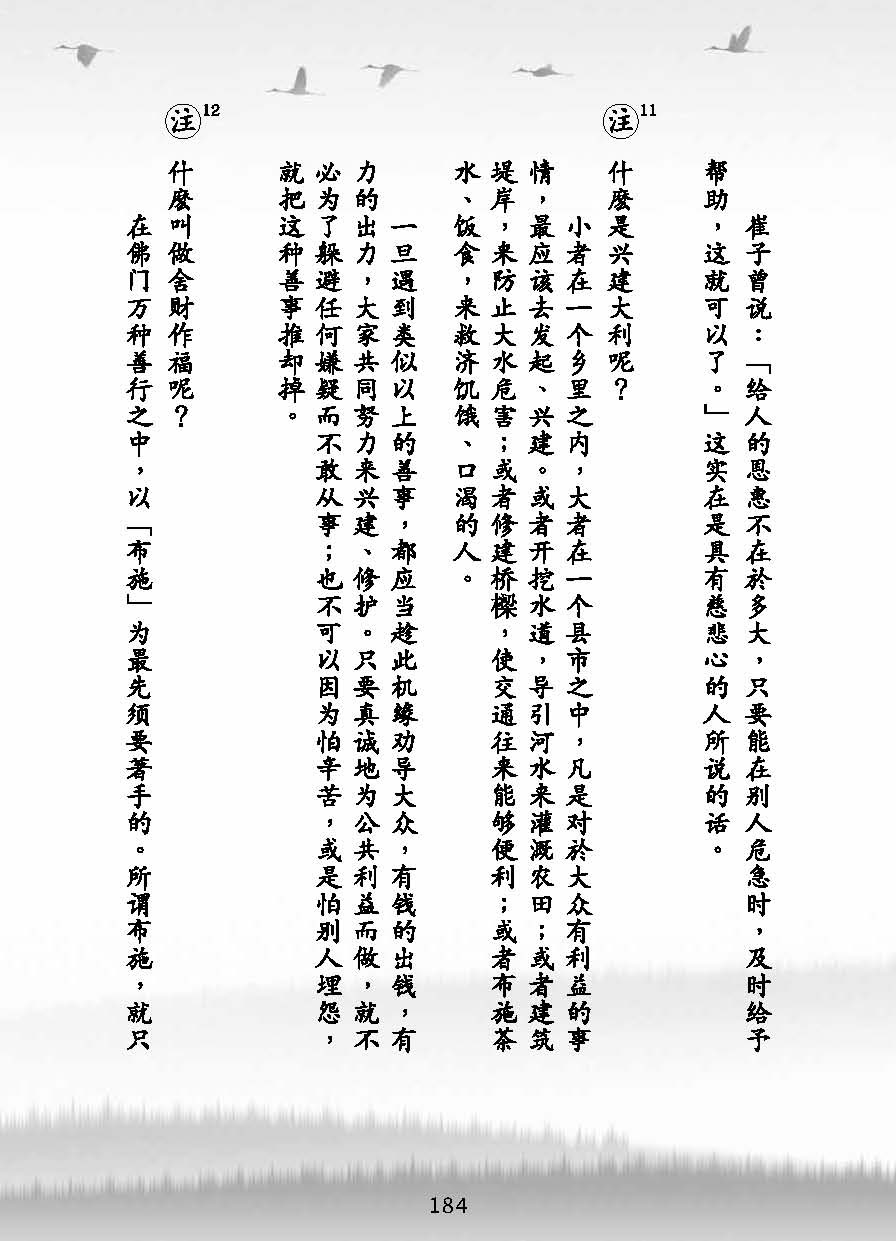 崔子曾说：「给人的恩惠不在於多大，只要能在别人危急时，及时给予
帮助，这就可以了。」这实在是具有慈悲心的人所说的话。
注11
什麼是兴建大利呢？
小者在一个乡里之内，大者在一个县市之中，凡是对於大众有利益的事
情，最应该去发起、兴建。或者开挖水道，导引河水来灌溉农田；或者建筑
堤岸，来防止大水危害；或者修建桥樑，使交通往来能够便利；或者布施茶
水、饭食，来救济饥饿、口渴的人。
一旦遇到类似以上的善事，都应当趁此机缘劝导大众，有钱的出钱，有
力的出力，大家共同努力来兴建、修护。只要真诚地为公共利益而做，就不
必为了躲避任何嫌疑而不敢从事；也不可以因为怕辛苦，或是怕别人埋怨，
就把这种善事推却掉。
注12
什麼叫做舍财作福呢？
在佛门万种善行之中，以「布施」为最先须要著手的。所谓布施，就只
184